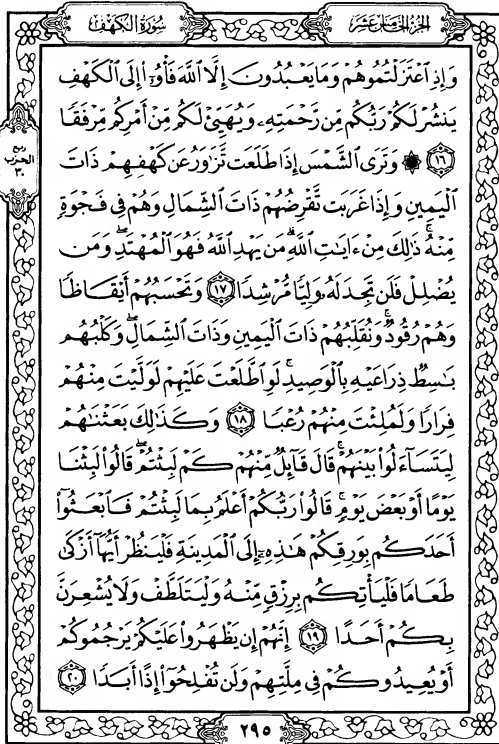 سُورَةُ الكَهْفِ
الجُزْءُ الخَامِسَ عَشَرَ
وَإِذِ ٱعْتَزَلْتُمُوهُمْ وَمَا يَعْبُدُونَ إِلَّا ٱللَّهَ فَأْوُۥٓا۟ إِلَى ٱلْكَهْفِ
يَنشُرْ لَكُمْ رَبُّكُم مِّن رَّحْمَتِهِۦ وَيُهَيِّئْ لَكُم مِّنْ أَمْرِكُم مِّرْفَقًا
١٦ ۞ وَتَرَى ٱلشَّمْسَ إِذَا طَلَعَت تَّزَٰوَرُ عَن كَهْفِهِمْ ذَاتَ
ٱلْيَمِينِ وَإِذَا غَرَبَت تَّقْرِضُهُمْ ذَاتَ ٱلشِّمَالِ وَهُمْ فِى فَجْوَةٍ
مِّنْهُ ۚ ذَٰلِكَ مِنْ ءَايَٰتِ ٱللَّهِ ۗ مَن يَهْدِ ٱللَّهُ فَهُوَ ٱلْمُهْتَدِ ۖ وَمَن
يُضْلِلْ فَلَن تَجِدَ لَهُۥ وَلِيًّا مُّرْشِدًا ١٧ وَتَحْسَبُهُمْ أَيْقَاظًا
وَهُمْ رُقُودٌ ۚ وَنُقَلِّبُهُمْ ذَاتَ ٱلْيَمِينِ وَذَاتَ ٱلشِّمَالِ ۖ وَكَلْبُهُم
بَٰسِطٌ ذِرَاعَيْهِ بِٱلْوَصِيدِ ۚ لَوِ ٱطَّلَعْتَ عَلَيْهِمْ لَوَلَّيْتَ مِنْهُمْ
فِرَارًا وَلَمُلِئْتَ مِنْهُمْ رُعْبًا ١٨ وَكَذَٰلِكَ بَعَثْنَٰهُمْ
لِيَتَسَآءَلُوا۟ بَيْنَهُمْ ۚ قَالَ قَآئِلٌ مِّنْهُمْ كَمْ لَبِثْتُمْ ۖ قَالُوا۟ لَبِثْنَا
يَوْمًا أَوْ بَعْضَ يَوْمٍ ۚ قَالُوا۟ رَبُّكُمْ أَعْلَمُ بِمَا لَبِثْتُمْ فَٱبْعَثُوٓا۟
أَحَدَكُم بِوَرِقِكُمْ هَٰذِهِۦٓ إِلَى ٱلْمَدِينَةِ فَلْيَنظُرْ أَيُّهَآ أَزْكَىٰ
طَعَامًا فَلْيَأْتِكُم بِرِزْقٍ مِّنْهُ وَلْيَتَلَطَّفْ وَلَا يُشْعِرَنَّ
بِكُمْ أَحَدًا ١٩ إِنَّهُمْ إِن يَظْهَرُوا۟ عَلَيْكُمْ يَرْجُمُوكُمْ
أَوْ يُعِيدُوكُمْ فِى مِلَّتِهِمْ وَلَن تُفْلِحُوٓا۟ إِذًا أَبَدًا ٢٠
ربع
الحزب
٣٠
٢٩٥